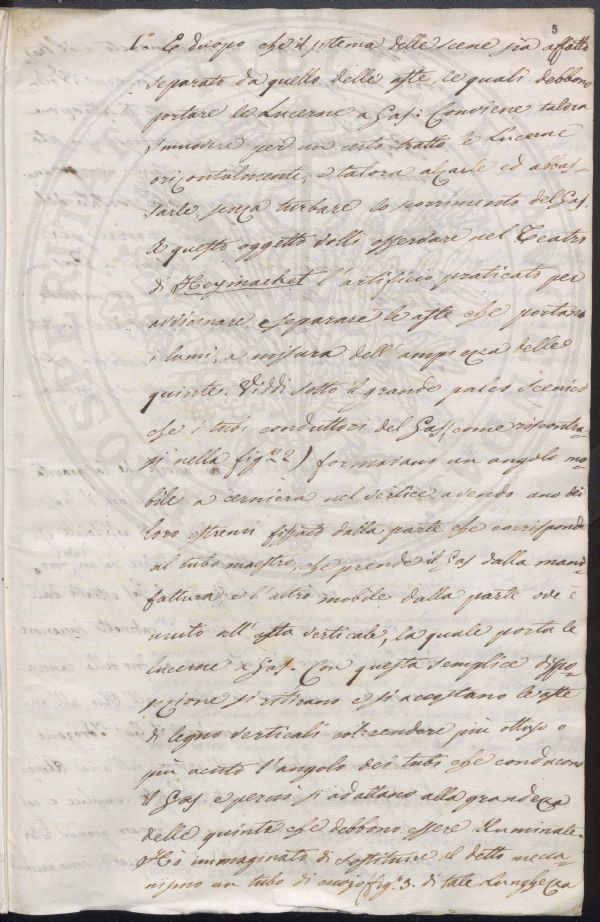 5
1.° È d'uopo che il sistema delle scene sia affatto
separato da quello delle aste, le quali debbono
portare le Lucerne a Gas: Conviene talora
smuovere per un certo tratto le Lucerne
orizontalmente, e talora alzarle ed abbas-
sarle, senza turbare lo scorrimento del Gas.
A questo oggetto volli osservare nel Teatro
di Heymarket l'artificio praticato per
avvicinare, e separare le aste che portano
i lumi, a misura dell'ampiezza delle
quinte. Viddi sotto il grande palco Scenico
che i tubi conduttori del Gas (come riscontra-
si nella fig.ª 2) formavano un angolo mo-
bile a cerniera nel vertice avendo uno dei
loro estremi fissato dalla parte che corrisponde
al tubo maestro, che prende il Gas dalla mani-
fattura e l'altro mobile dalla parte ove è
unito all'asta verticale, la quale porta le
lucerne a Gas. Con questa semplice dispo-
sizione si ritirano e si accostano le aste
di legno verticali col rendere più ottuso o
più acuto l'angolo dei tubi che conducono
il Gas e perciò si adattano alla grandezza
delle quinte che debbono essere illuminate.
Hò immaginato di sostituire al detto mecca-
nismo un tubo di cuojo (fig.ª 3. di tale lunghezza